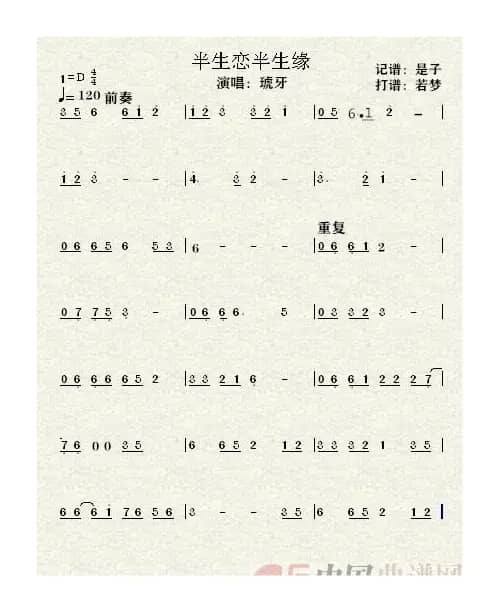 半生恋半生缘
1=D 4/4
演唱：琥牙
记谱：是子
♩=120 前奏
打谱：若梦
3 5 6 6 1 2 | 1 2 3 3 2 1 2 | 0 5 6.1 2 - |
1 2 3 - - | 4. 3 2 - | 3. 2 1 - |
重复
0 6 6 5 6 5 3 | 6 - - - | 0 6 6 1 2 - |
0 7 7 5 3 - | 0 6 6 6. 5 | 0 3 3 2 3 - |
0 6 6 6 6 5 2 | 3 3 2 1 6 - | 0 6 6 1 2 2 2 7 |
7 6 0 0 3 5 | 6 6 5 2 1 2 | 3 3 3 2 1 3 5 |
6 6 6 1 7 6 5 6 | 3 - - 3 5 | 6 6 5 2 1 2 |